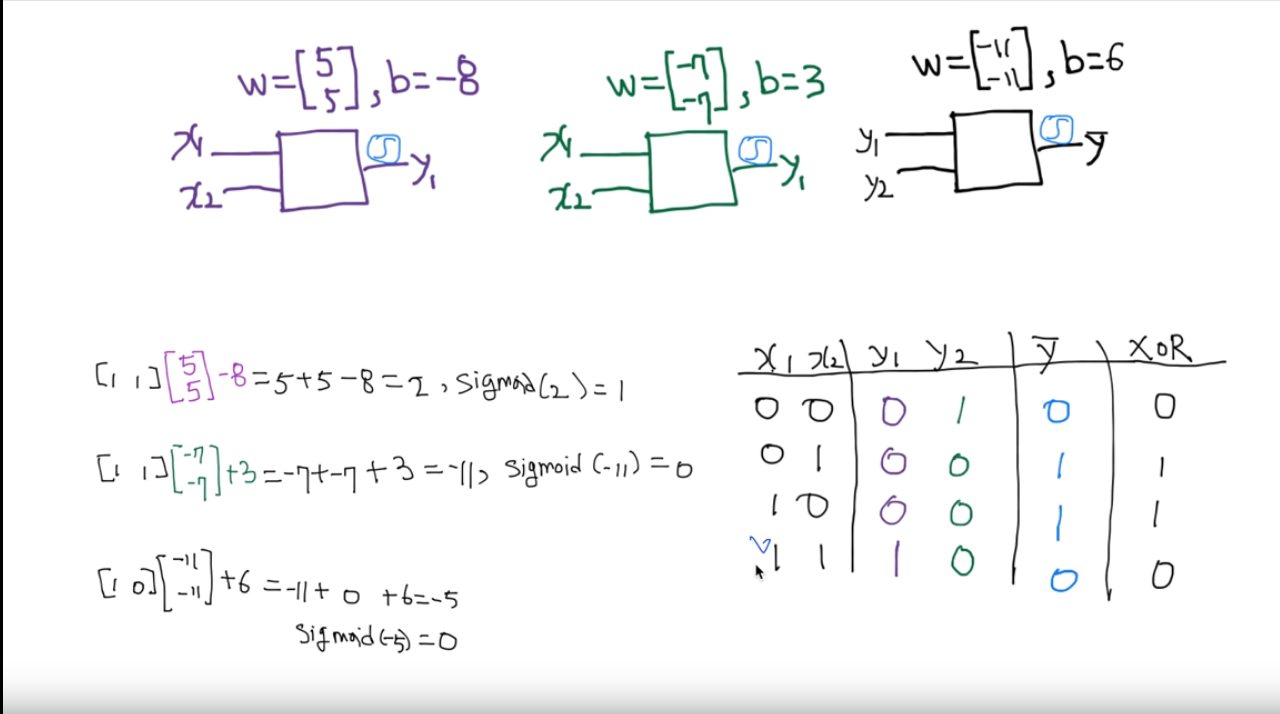 w=[5 5], b=-8
x1
x2
S
y1
w=[-7 -7], b=3
x1
x2
S
y1
w=[-11 -11], b=6
y1
y2
S
ȳ
[1 1][5 5]-8=5+5-8=2, sigmoid(2)=1
[1 1][-7 -7]+3=-7+-7+3=-11, sigmoid(-11)=0
[1 0][-11 -11]+6=-11+0+6=-5
sigmoid(-5)=0
x1 x2 y1 y2 ȳ XOR
0 0 0 1 0 0
0 1 0 0 1 1
1 0 0 0 1 1
1 1 1 0 0 0